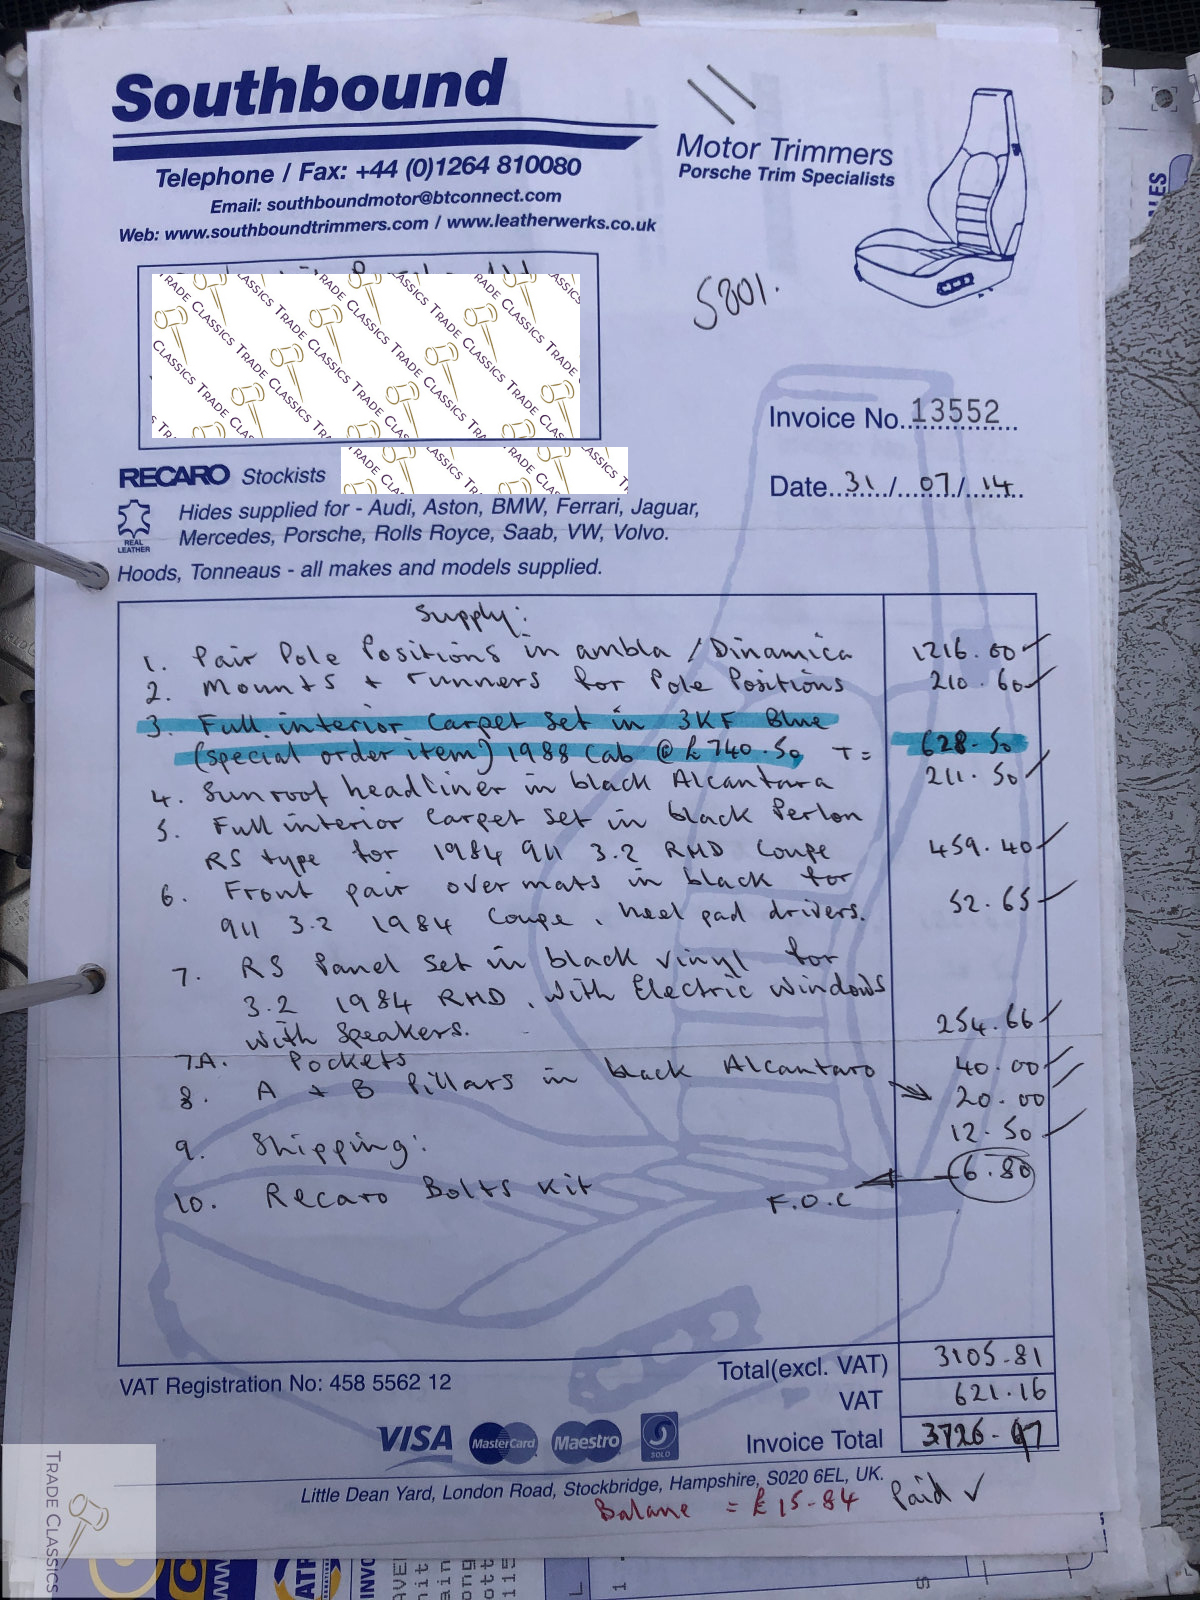 Southbound
Telephone / Fax: +44 (0)1264 810080
Email: southboundmotor@btconnect.com
Web: www.southboundtrimmers.com / www.leatherwerks.co.uk
Motor Trimmers
Porsche Trim Specialists
5801.
Invoice No. 13552
Date 31 / 07 / 14
RECARO Stockists
REAL LEATHER
Hides supplied for - Audi, Aston, BMW, Ferrari, Jaguar,
Mercedes, Porsche, Rolls Royce, Saab, VW, Volvo.
Hoods, Tonneaus - all makes and models supplied.
Supply:
1. Pair Pole Positions in ambla / Dinamica 1216.00
2. Mounts + runners for Pole Positions 210.60
3. Full interior Carpet Set in 3KF Blue
(special order item) 1988 Cab @ £740.50 T = 628.50
4. Sunroof headliner in black Alcantara 211.50
5. Full interior Carpet Set in black Perlon
RS type for 1984 911 3.2 RHD Coupe 459.40
6. Front pair over mats in black for
911 3.2 1984 Coupe, heel pad drivers. 52.65
7. RS Panel Set in black vinyl for
3.2 1984 RHD, with Electric windows
with Speakers. 254.66
7A. Pockets 40.00
8. A + B Pillars in black Alcantara 20.00
9. Shipping: 12.50
10. Recaro Bolts Kit F.O.C 6.80
Total(excl. VAT) 3105.81
VAT 621.16
Invoice Total 3726.97
VAT Registration No: 458 5562 12
VISA MasterCard Maestro SOLO
Little Dean Yard, London Road, Stockbridge, Hampshire, SO20 6EL, UK.
Balane = £15-84 Paid ✓
TRADE CLASSICS